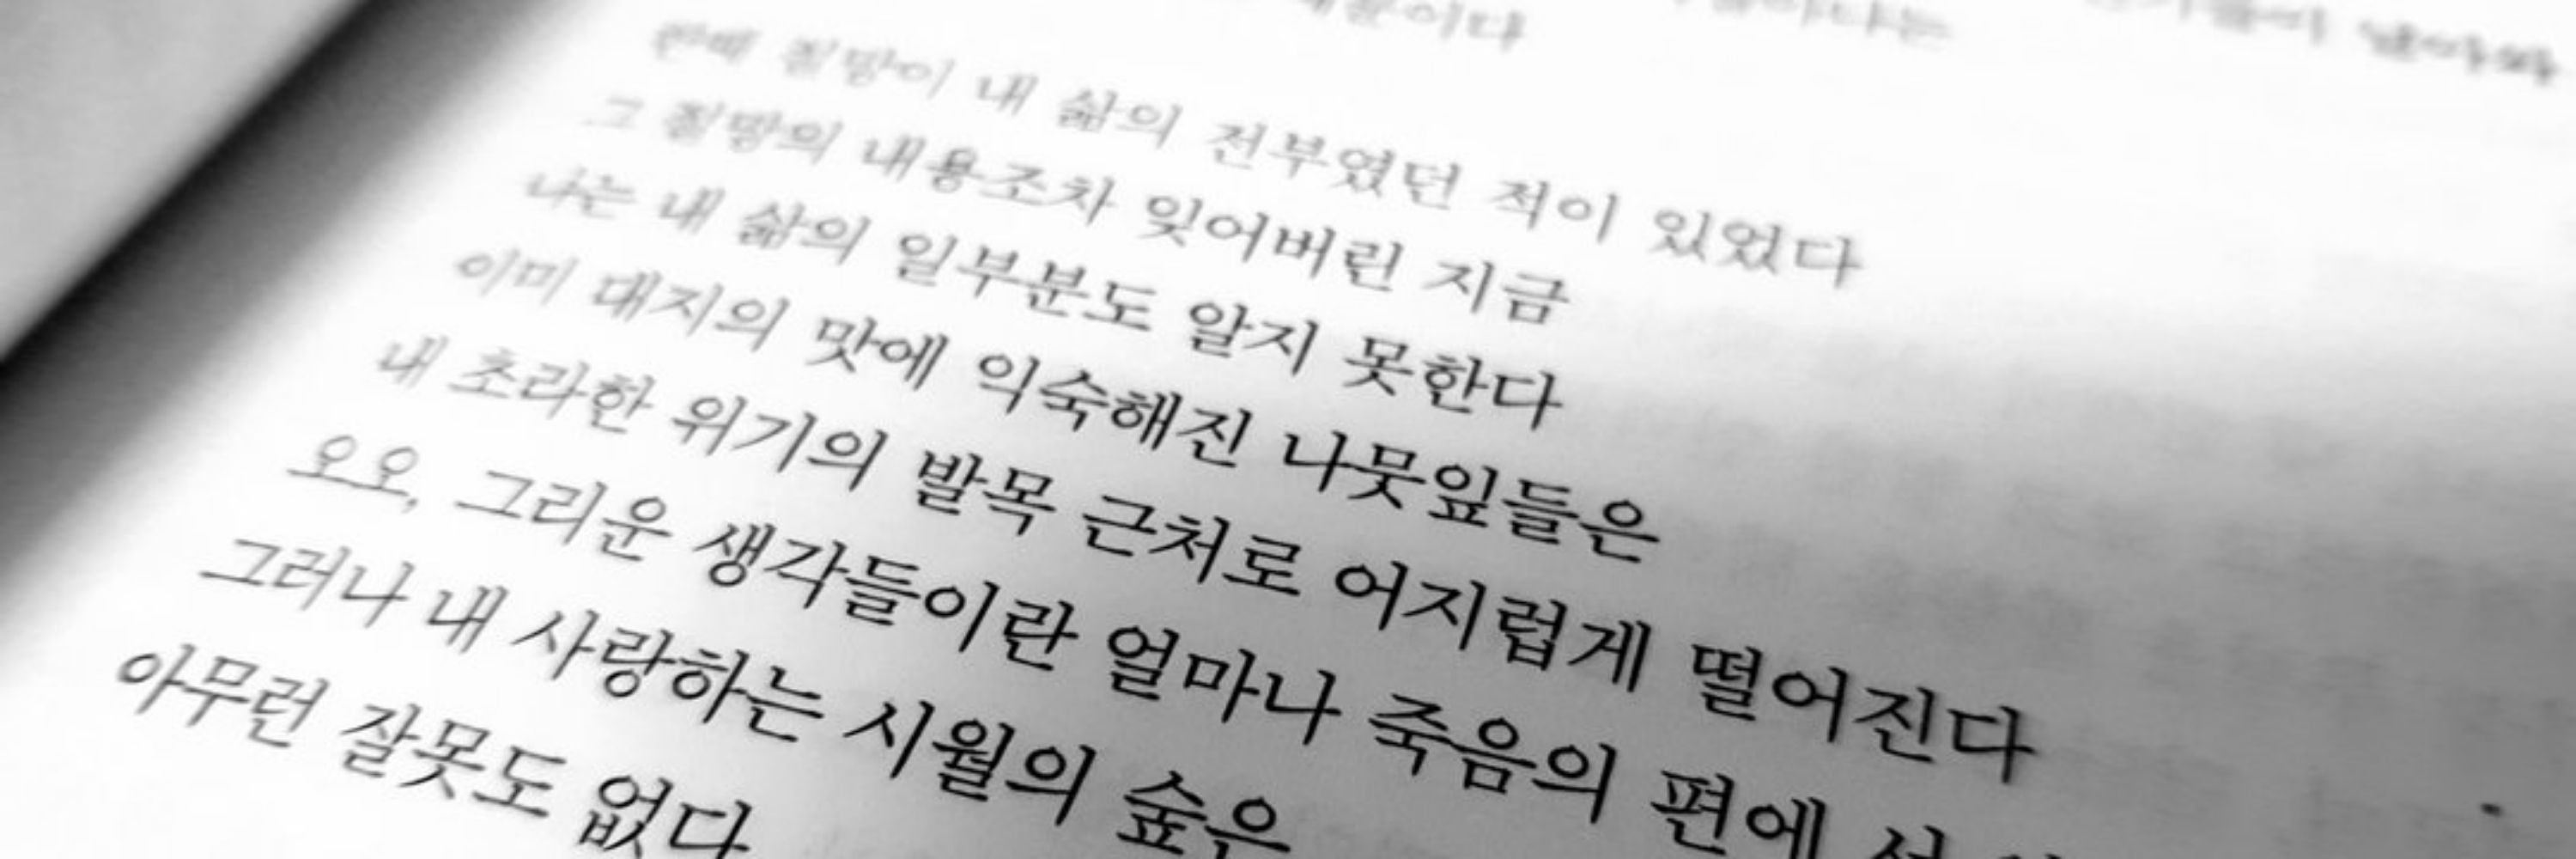 한때 절망이 내 삶의 전부였던 적이 있었다
그 절망의 내용조차 잊어버린 지금
나는 내 삶의 일부분도 알지 못한다
이미 대지의 맛에 익숙해진 나뭇잎들은
내 초라한 위기의 발목 근처로 어지럽게 떨어진다
오오, 그리운 생각들이란 얼마나 죽음의 편에
그러나 내 사랑하는 시월의 숲은
아무런 잘못도 없다